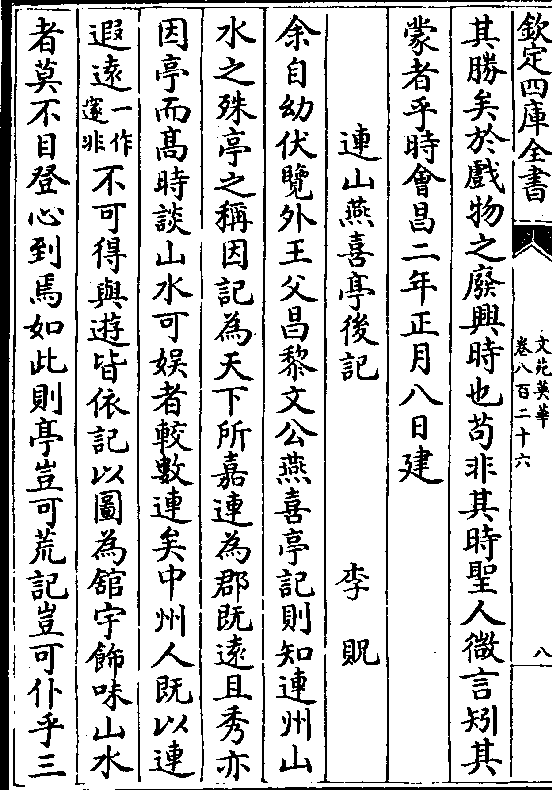 欽定四庫全書
文苑英華
卷八百二十六
八
其勝矣於戲物之廢興時也苟非其時聖人微言矧其
蒙者乎時會昌二年正月八日建
連山燕喜亭後記 李貺
余自幼伏覽外王父昌黎文公燕喜亭記則知連州山
水之殊亭之稱因記為天下所嘉連為郡既遠且秀亦
因亭而髙時談山水可娯者較數連矣中州人既以連
遐遠一作寔非不可得與遊皆依記以圖為舘宇飾味山水
者莫不目登心到焉如此則亭豈可荒記豈可仆乎三